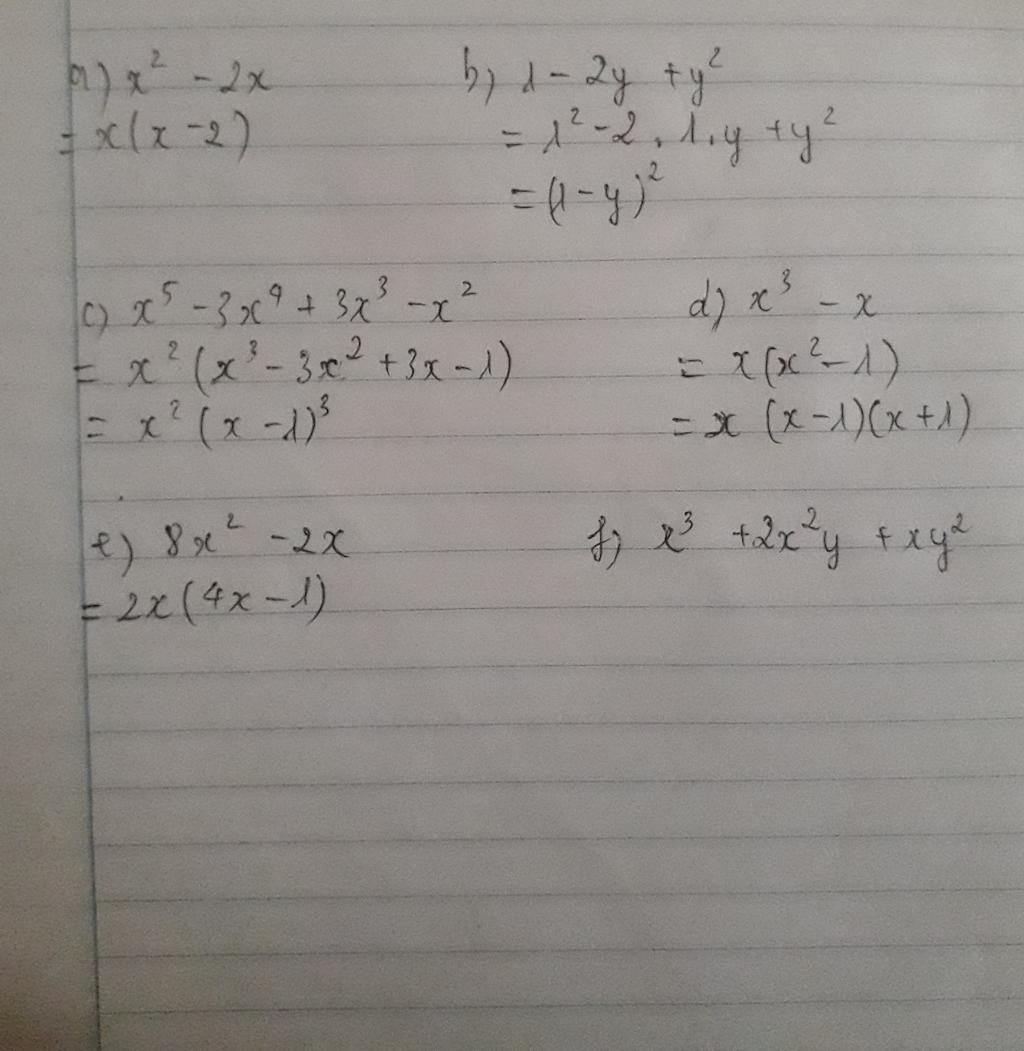 a) x² - 2x
= x(x - 2)
b) 1 - 2y + y²
= 1² - 2 . 1 . y + y²
= (1 - y)²
c) x⁵ - 3x⁴ + 3x³ - x²
= x² (x³ - 3x² + 3x - 1)
= x² (x - 1)³
d) x³ - x
= x(x² - 1)
= x (x - 1)(x + 1)
e) 8x² - 2x
= 2x(4x - 1)
f) x³ + 2x²y + xy²